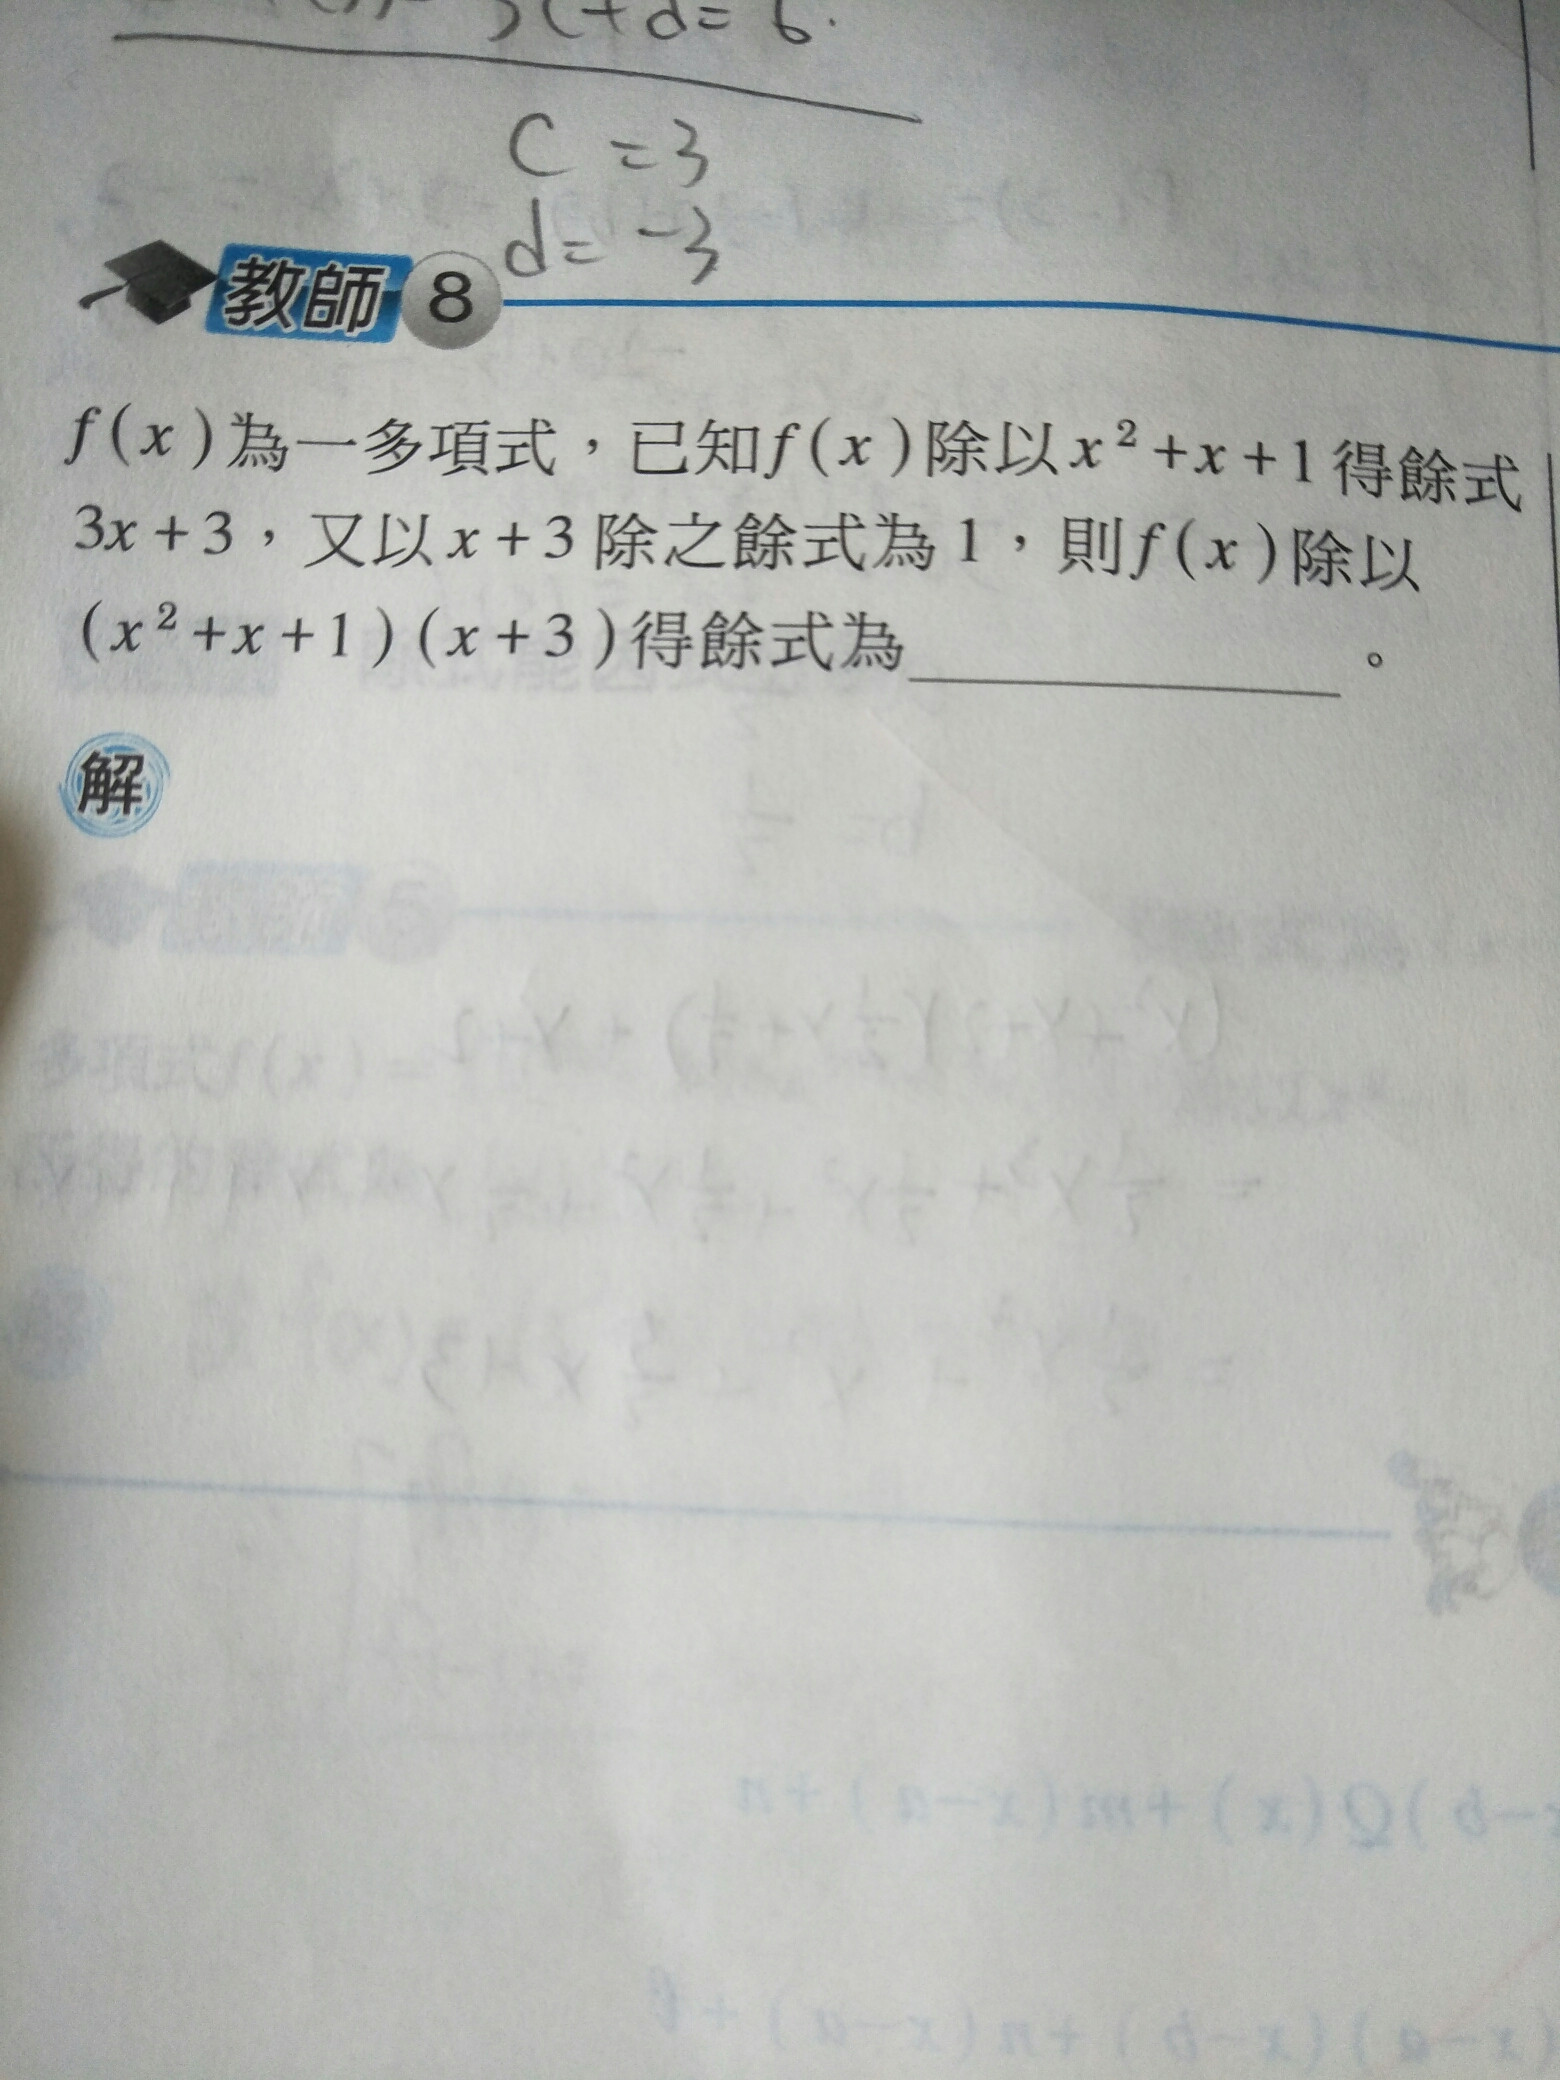 3c+d=6.
c=3
d=-3
教師 8
f(x)為一多項式，已知f(x)除以x²+x+1得餘式
3x+3，又以x+3除之餘式為1，則f(x)除以
(x²+x+1)(x+3)得餘式為________。
解